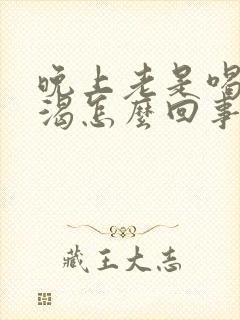 晚上老是喝
渴怎麼回事
藏王大志